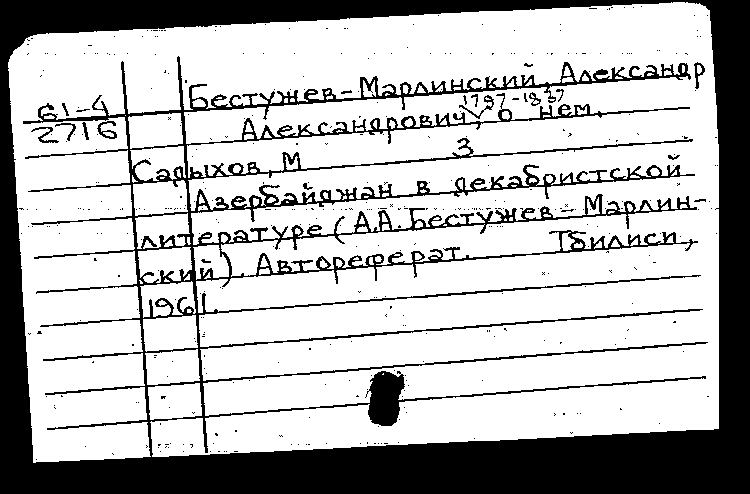 Бестужев-Марлинский, Александр
61-4
2716
1797-1837
Александрович, о нем.
Садыхов, М 3
Азербайджан в декабристской
литературе (А.А. Бестужев-Марлин-
ский). Автореферат. Тбилиси,
1961.